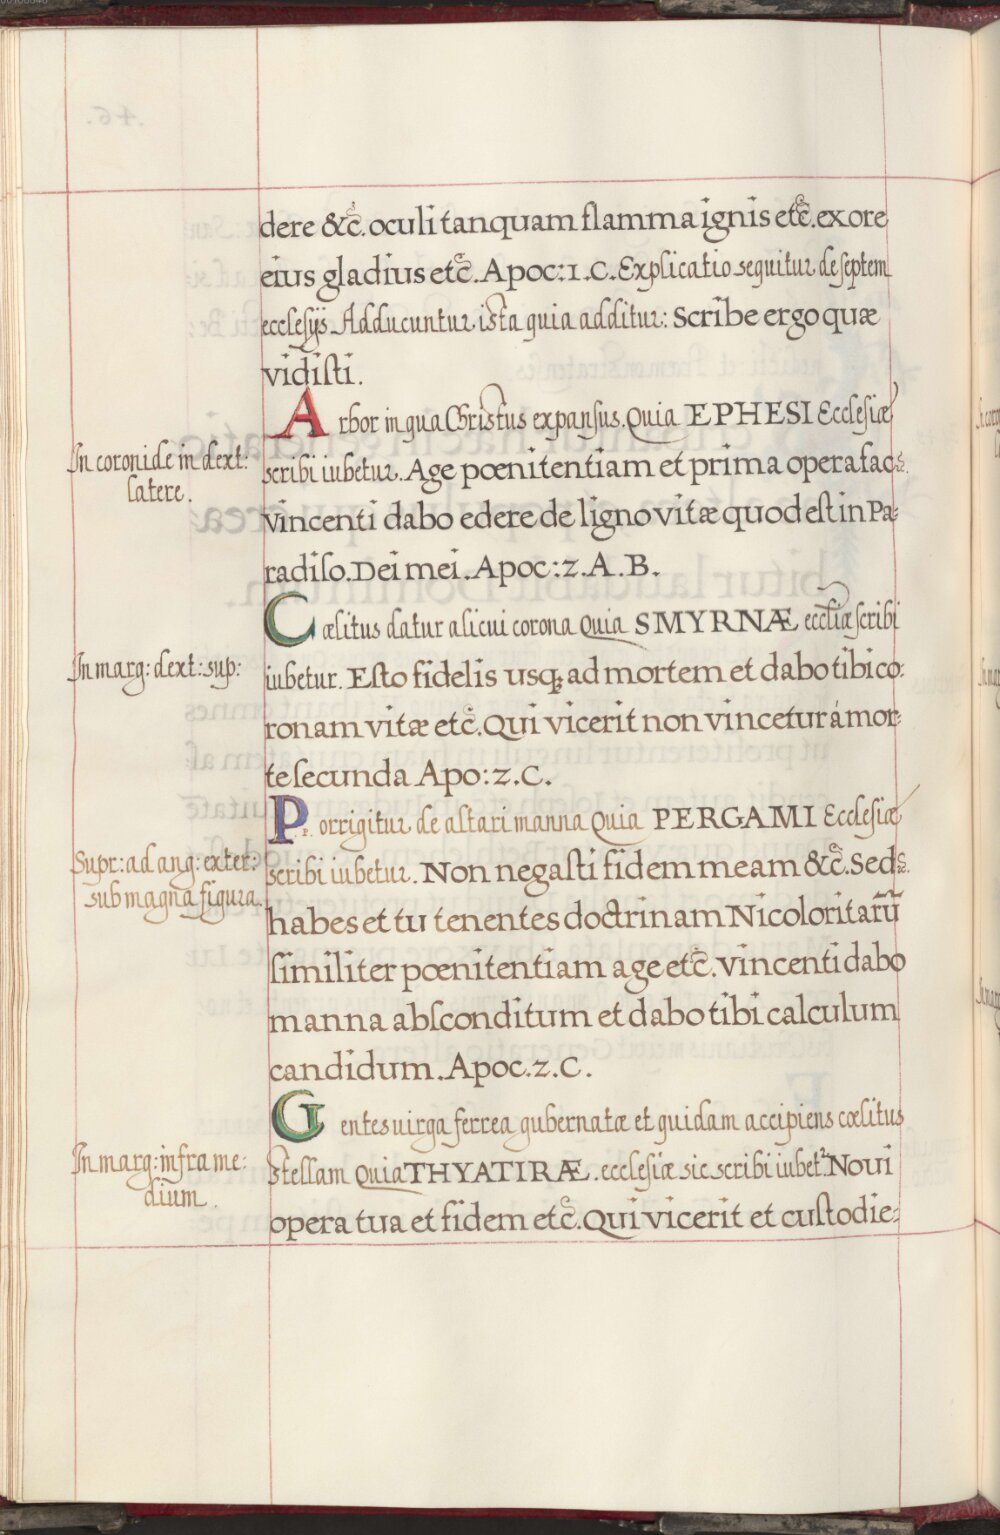 dere &c̃. oculi tanquam flamma ignis etc̃. ex ore
eius gladius etc̃. Apoc: 1. C. Explicatio sequitur de septem
ecclesijs. Adducuntur ista quia additur: Scribe ergo quæ
vidisti.
Arbor in qua Christus expansus. Quia EPHESI Ecclesiæ
In coronide in dext:
latere.
scribi iubetur. Age pœnitentiam et prima opera fac
vincenti dabo edere de ligno vitæ quod est in Pa:
radiso. Dei mei. Apoc: 2. A. B.
Cælitus datur alicui corona Quia SMYRNÆ eccliæ scribi
In marg: dext: sup:
iubetur. Esto fidelis usq; ad mortem et dabo tibi co:
ronam vitæ etc̃. Qui vicerit non vincetur á mor:
te secunda Apo: 2. C.
Porrigitur de altari manna Quia PERGAMI Ecclesiæ
Supr: ad ang: exter:
sub magna figura.
scribi iubetur. Non negasti fidem meam &c̃. Sed
habes et tu tenentes doctrinam Nicoloritarũ
similiter pœnitentiam age etc̃. vincenti dabo
manna absconditum et dabo tibi calculum
candidum. Apoc. 2. C.
Gentes uirga ferrea gubernatæ et quidam accipiens cœlitus
In marg: infra me:
dium.
stellam Quia THYATIRÆ. ecclesiæ sic scribi iubetr Noui
opera tua et fidem etc̃. Qui vicerit et custodie: